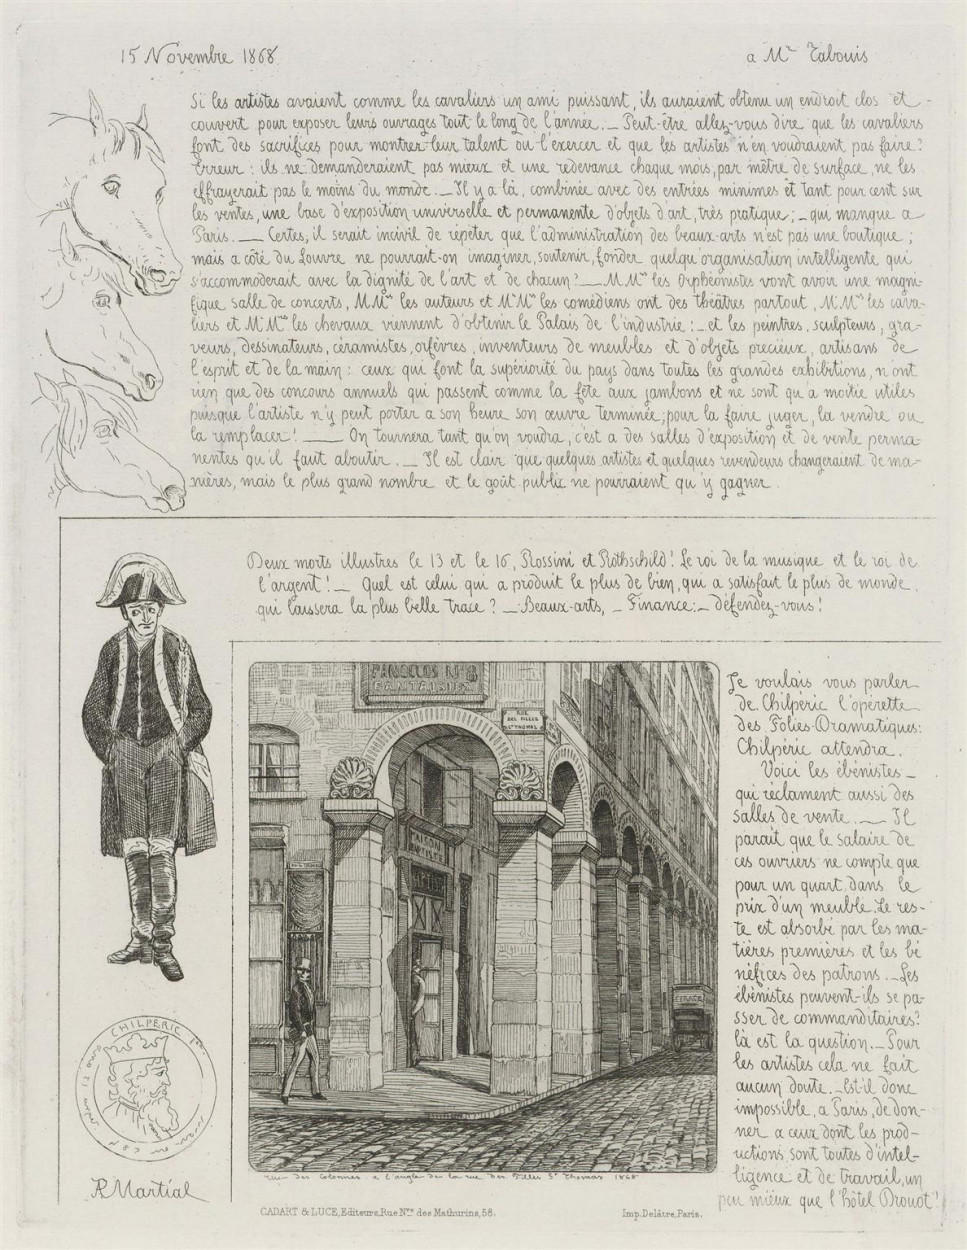 15 Novembre 1868
a Mr Tabouis
Si les artistes avaient comme les cavaliers un ami puissant, ils auraient obtenu un endroit clos et
couvert pour exposer leurs ouvrages tout le long de l'année. _ Peut-être allez-vous dire que les cavaliers
font des sacrifices pour montrer leur talent ou l'exercer et que les artistes n'en voudraient pas faire?
Erreur: ils ne demanderaient pas mieux et une redevance chaque mois, par mètre de surface, ne les
effrayerait pas le moins du monde. _ Il y a là, combinée avec des entrées minimes et tant pour cent sur
les ventes, une base d'exposition universelle et permanente d'objets d'art, très pratique; _ qui manque a
Paris. __ Certes, il serait incivil de répéter que l'administration des beaux-arts n'est pas une boutique;
mais a coté du Louvre ne pourrait-on imaginer, soutenir, fonder quelqu'organisation intelligente qui
s'accommoderait avec la dignité de l'art et de chacun! __ M.Mrs les Orphéonistes vont avoir une magni-
fique salle de concerts, M.Mrs les auteurs et M.Mrs les comédiens ont des théâtres partout, M.Mrs les cava-
liers et M.Mrs les chevaux viennent d'obtenir le Palais de l'industrie: _ et les peintres, sculpteurs, gra-
veurs, dessinateurs, céramistes, orfèvres, inventeurs de meubles et d'objets precieux, artisans de
l'esprit et de la main: ceux qui font la supériorité du pays dans toutes les grandes exhibitions, n'ont
rien que des concours annuels qui passent comme la fête aux jambons et ne sont qu'a moitié utiles
puisque l'artiste n'y peut porter a son heure son œuvre terminée, pour la faire juger, la vendre ou
la remplacer! __ On tournera tant qu'on voudra, c'est a des salles d'exposition et de vente perma-
nentes qu'il faut aboutir. _ Il est clair que quelques artistes et quelques revendeurs changeraient de ma-
nières, mais le plus grand nombre et le goût public ne pourraient qu'y gagner.
Deux morts illustres le 13 et le 16, Rossini et Rothschild! Le roi de la musique et le roi de
l'argent! _ Quel est celui qui a produit le plus de bien, qui a satisfait le plus de monde,
qui laissera la plus belle trace? _ Beaux-arts, _ Finance: _ défendez-vous!
Je voulais vous parler
de Chilpéric l'opérette
des Folies-Dramatiques:
Chilpéric attendra.
Voici les ébénistes _
qui réclament aussi des
salles de vente. __ Il
parait que le salaire de
ces ouvriers ne compte que
pour un quart, dans le
prix d'un meuble. Le res-
te est absorbé par les ma-
tières premières et les bé
néfices des patrons. _ Les
ébénistes peuvent-ils se pa-
sser de commanditaires?
là est la question. _ Pour
les artistes cela ne fait
aucun doute. _ Est-il donc
impossible, a Paris, de don-
ner a ceux dont les prod-
uctions sont toutes d'intel-
ligence et de travail, un
peu mieux que l'hôtel Drouot!
FANTAISIES
RUE
DES FILLES
St THOMAS
MAISON
CHILPERIC
AP Martial
rue des Colonnes a l'angle de la rue des Filles St Thomas 1868
CADART & LUCE, Editeurs, Rue Nve des Mathurins, 58.
Imp. Delâtre, Paris.